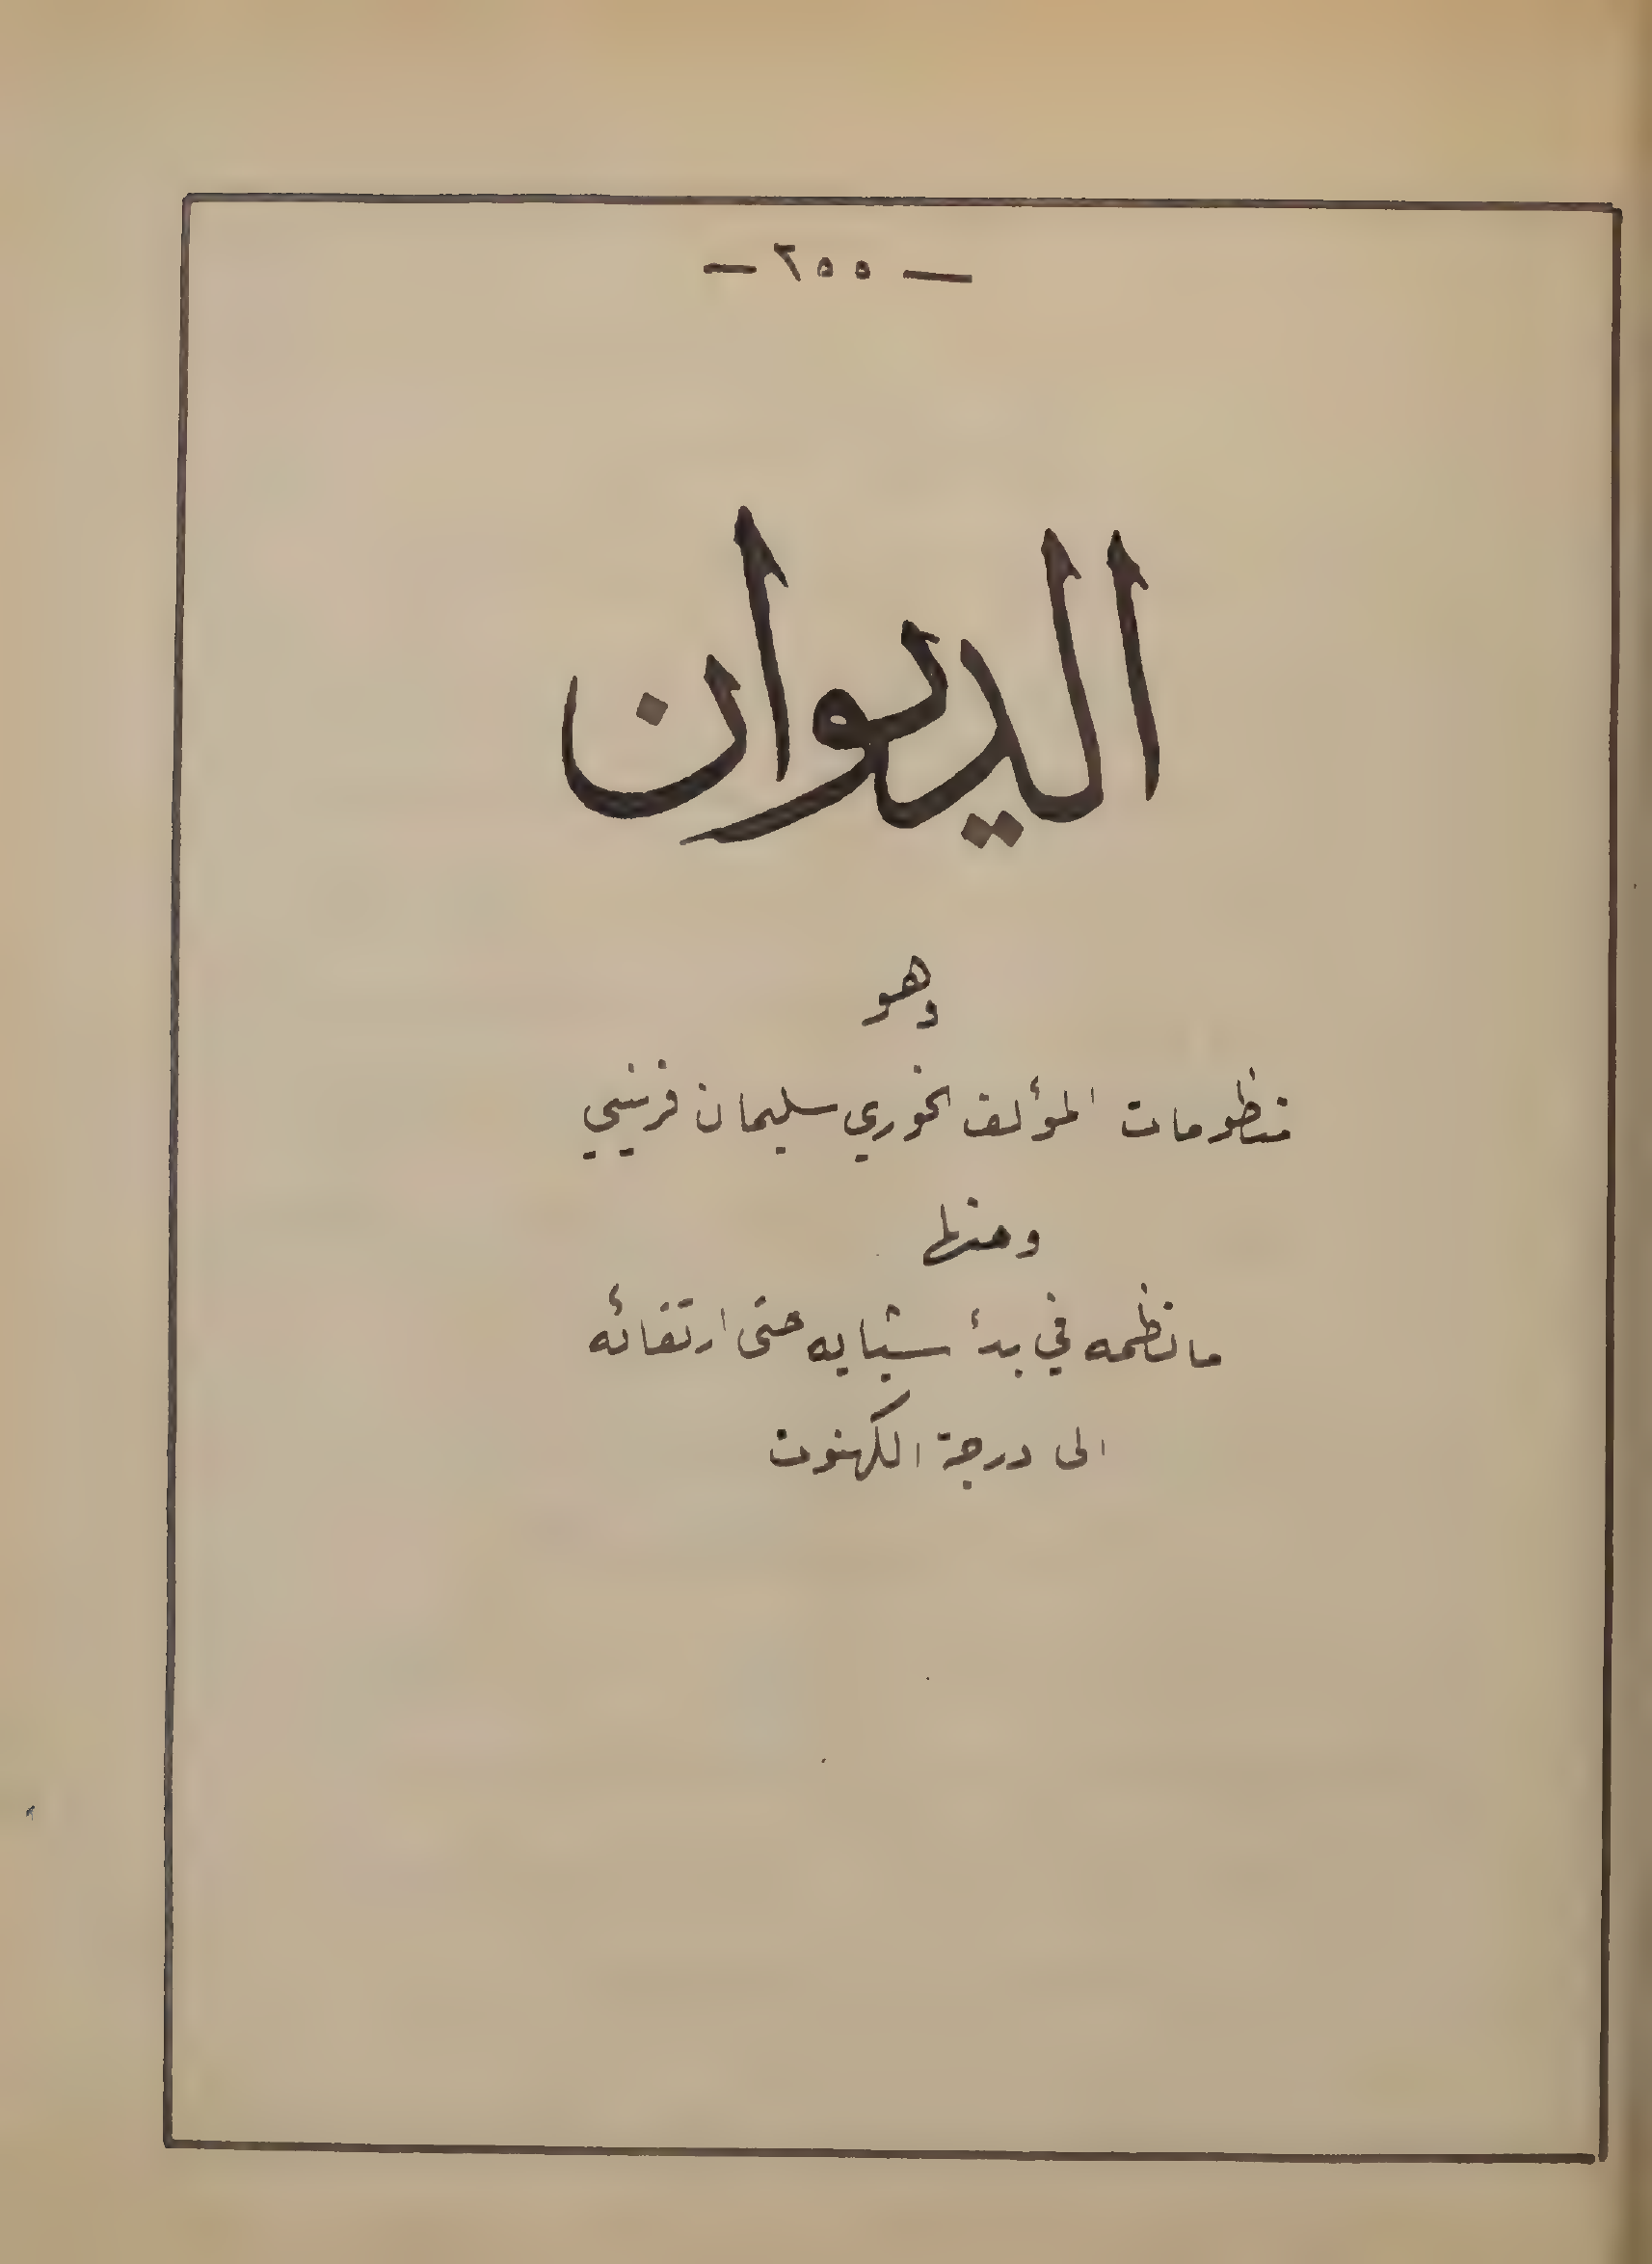 — ٢٥٥ —
الديوان
وهو
منظومات المؤلف الخوري سليمان فرنيني
ومنها
ما نظمه في بدء شبابه حتى ارتقائه
الى درجة الكهنوت